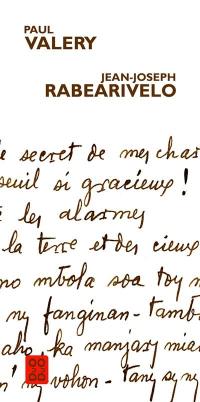 PAUL
VALERY
JEAN-JOSEPH
RABEARIVELO
le secret de mes char
seuil si gracieux !
les alarmes
la terre et des cieux
no mbola soa toy n
ny fanginan - tamb
aho, ka manjary mian
n' ny vohon - tany sy ny